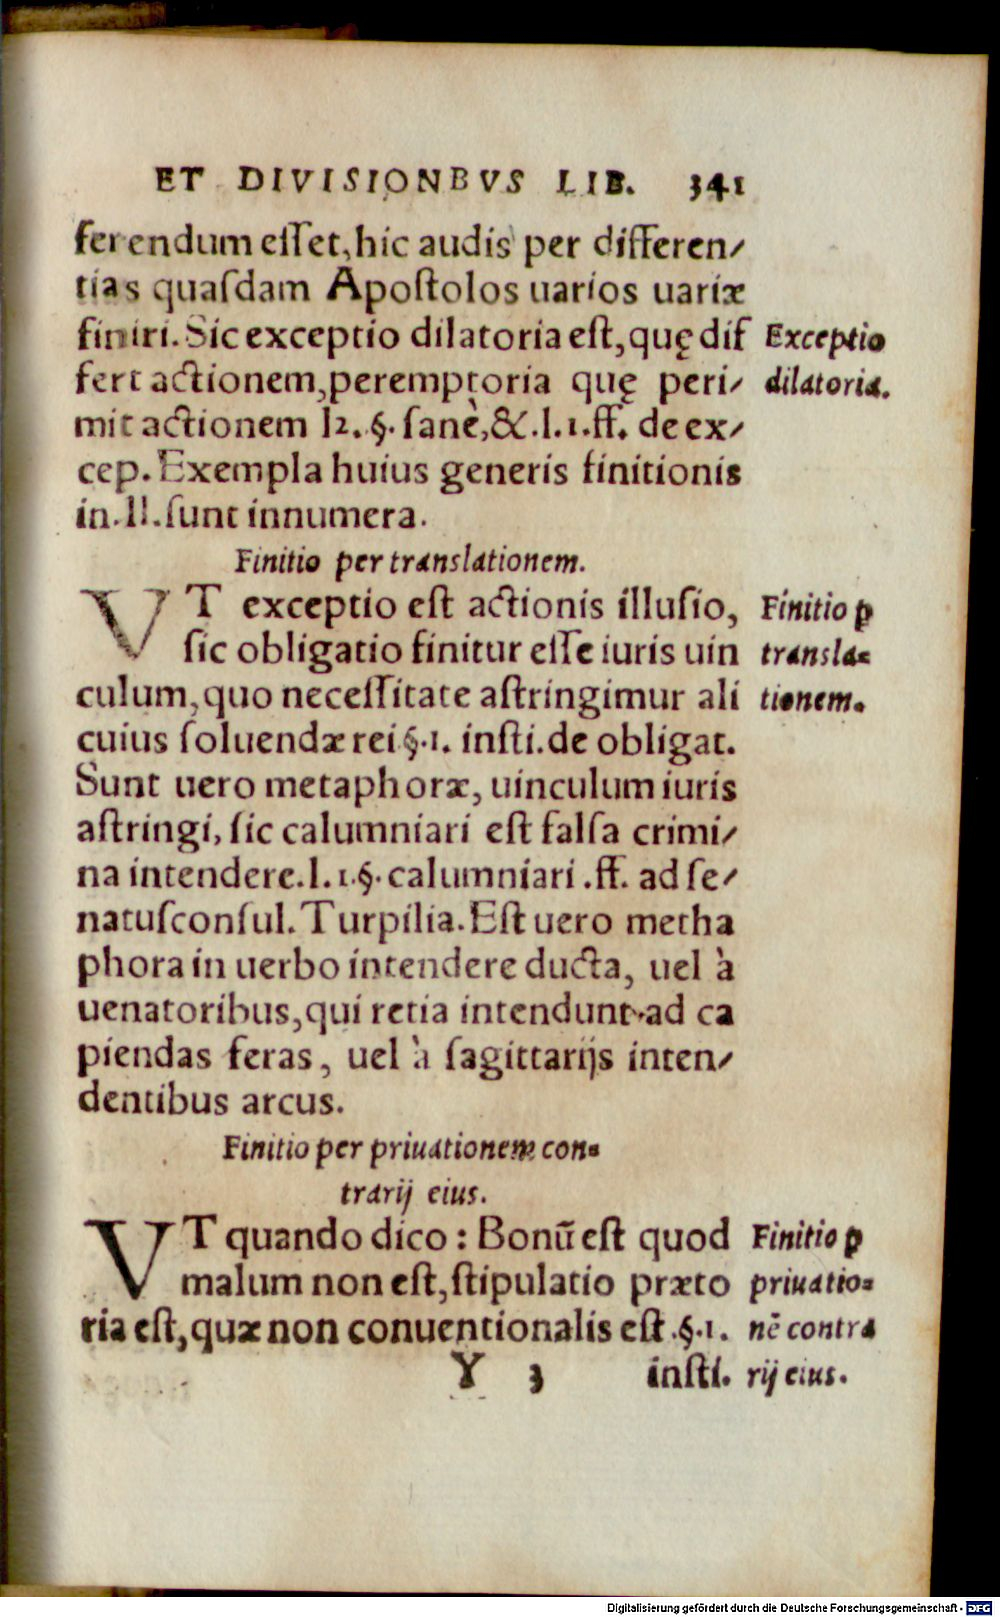 ET DIVISIONBVS LIB. 341
ferendum eſſet, hic audis per differen-
tias quaſdam Apoſtolos uarios uariæ
finiri. Sic exceptio dilatoria eſt, quę dif
fert actionem, peremptoria quę peri-
mit actionem l2. §. ſanè, &. l. 1. ff. de ex-
cep. Exempla huius generis finitionis
in. ll. ſunt innumera.
Exceptio
dilatoria.
Finitio per translationem.
VT exceptio eſt actionis illuſio,
ſic obligatio finitur eſſe iuris uin
culum, quo neceſſitate aſtringimur ali
cuius ſoluendæ rei §. 1. inſti. de obligat.
Sunt uero metaphoræ, uinculum iuris
aſtringi, ſic calumniari eſt falſa crimi-
na intendere. l. 1. §. calumniari. ff. ad ſe-
natuſconſul. Turpilia. Eſt uero metha
phora in uerbo intendere ducta, uel à
uenatoribus, qui retia intendunt ad ca
piendas feras, uel à ſagittarijs inten-
dentibus arcus.
Finitio ꝑ
transla=
tionem.
Finitio per priuationem con=
trarij eius.
VT quando dico: Bonū eſt quod
malum non eſt, ſtipulatio præto
ria eſt, quæ non conuentionalis eſt. §. 1.
Y 3 inſti.
Finitio ꝑ
priuatio=
nē contra
rij eius.
Digitalisierung gefördert durch die Deutsche Forschungsgemeinschaft - DFG